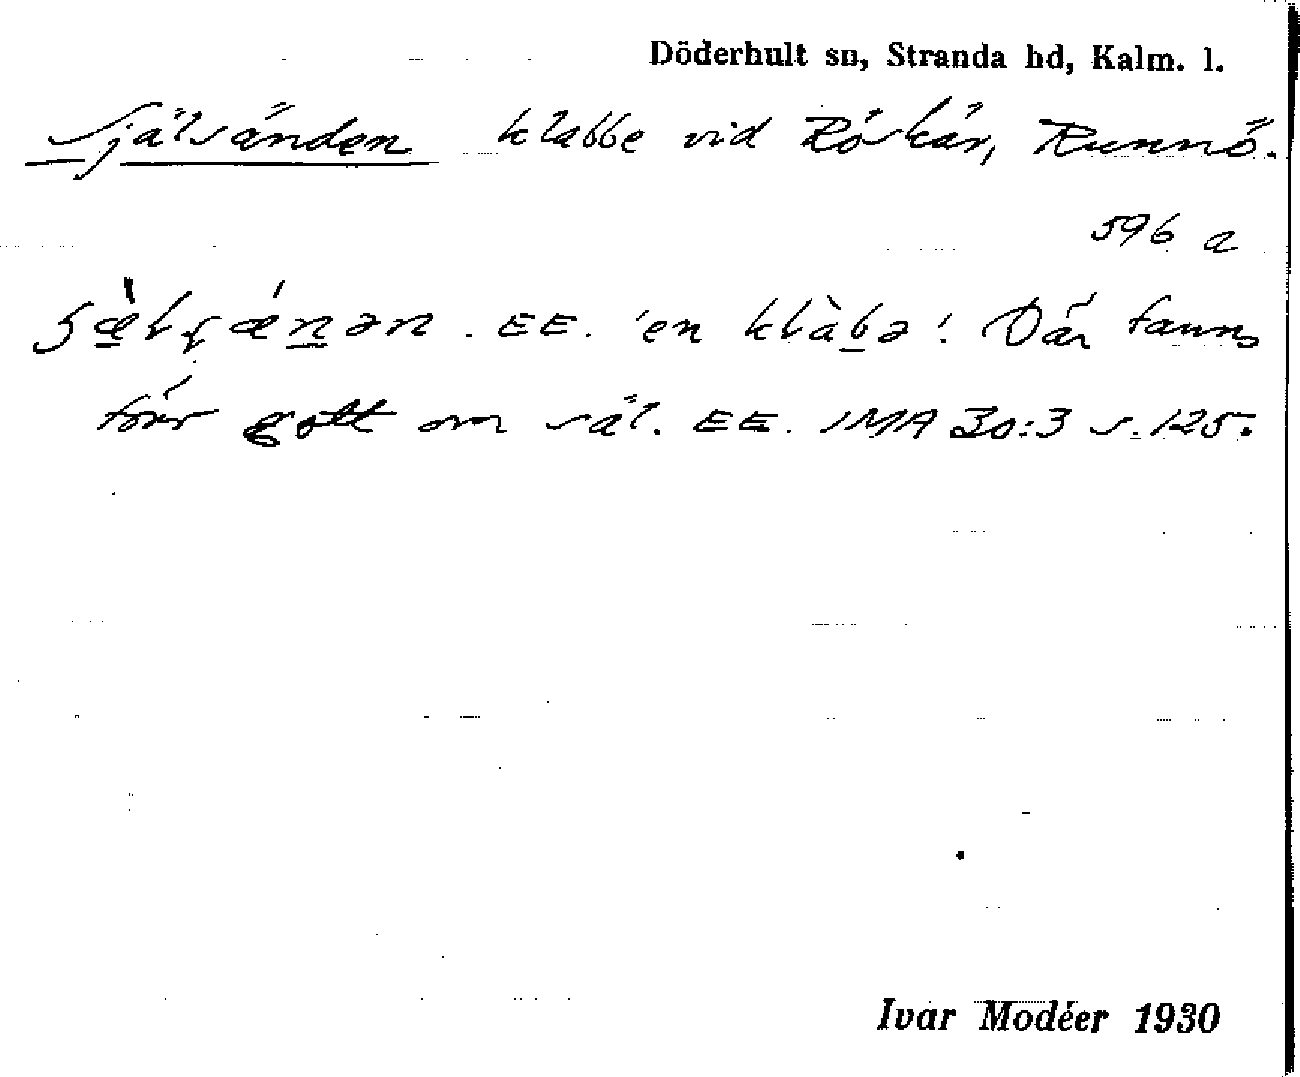 Döderhult sn, Stranda hd, Kalm. l.
Själsänden klabbe vid Röskär, Runnö.
596 a
EE. 'en klàba'. Där fanns
förr gott om säl. EE. IMA 30:3 s. 125.
Ivar Modéer 1930